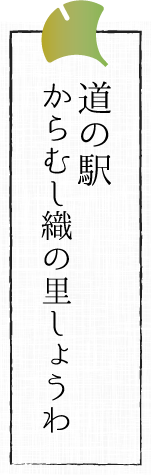 道の駅
からむし織の里しょうわ